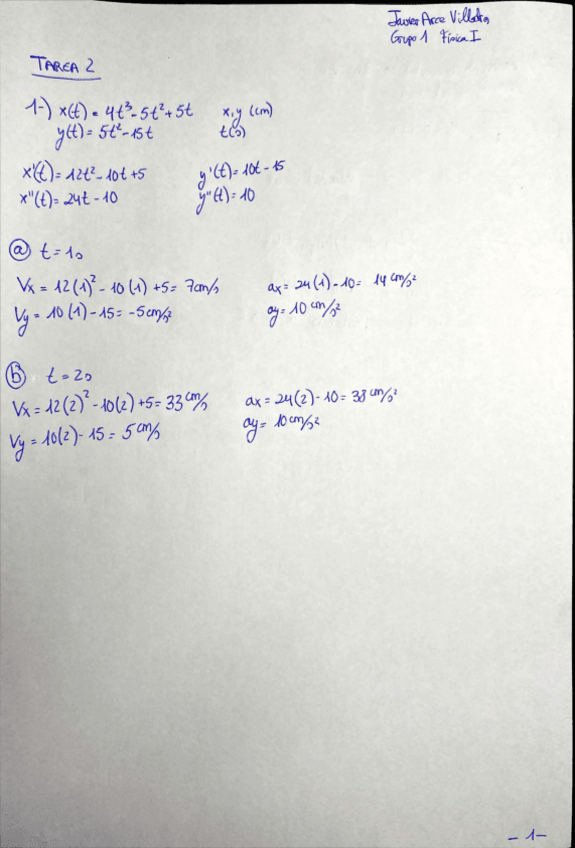 Javier Arce
Grupo 1 Física I
TAREA 2
1-) x(t) = 4t³-5t²+5t x,y (cm)
y(t) = 5t²-15t t(s)
x'(t) = 12t²-10t+5 y'(t) = 10t-15
x''(t) = 24t-10 y''(t) = 10
ⓐ t = 1s
Vx = 12(1)² - 10(1) +5 = 7cm/s ax = 24(1)-10 = 14 cm/s²
Vy = 10(1)-15 = -5cm/s² ay = 10 cm/s²
ⓑ t = 2s
Vx = 12(2)² -10(2) +5 = 33 cm/s ax = 24(2)-10 = 38 cm/s²
Vy = 10(2)-15 = 5 cm/s ay = 10cm/s²
- 1-